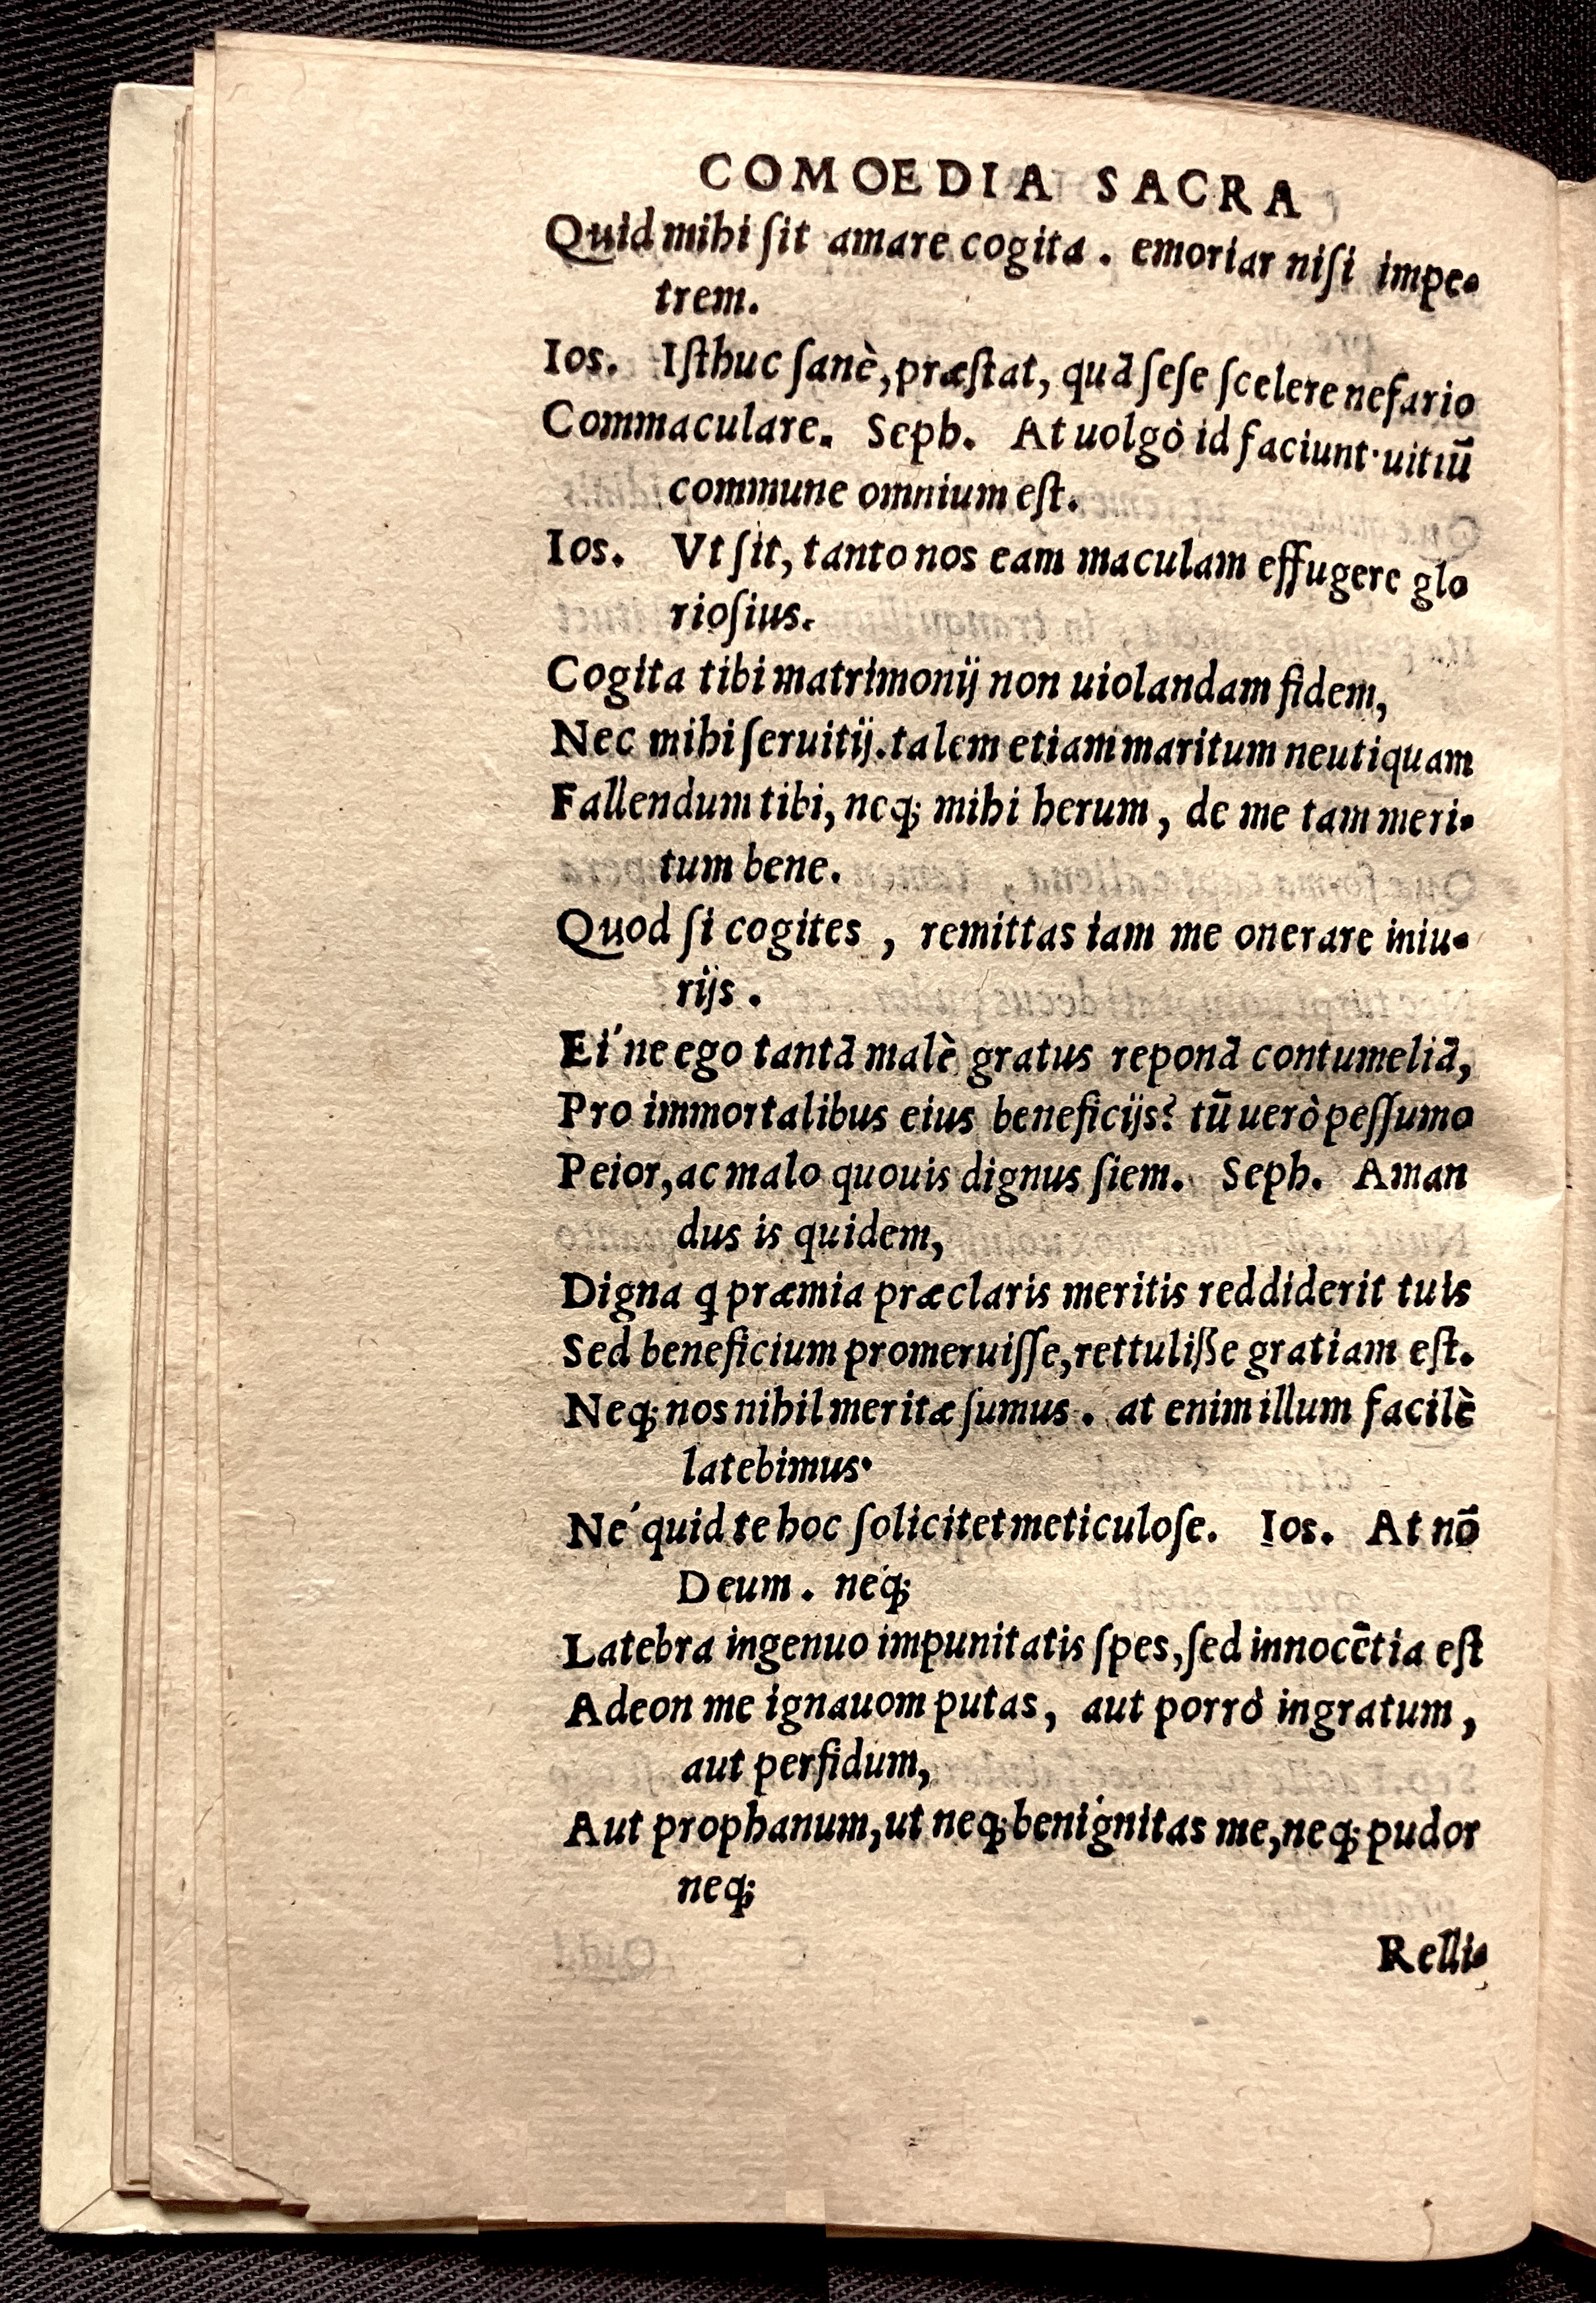 COMOEDIA SACRA
Quid mihi ſit amare cogita . emoriar niſi impe-
trem.
Ios. Iſthuc ſanè, præſtat, quā ſeſe ſcelere nefario
Commaculare. Seph. At uolgò id faciunt· uitiū
commune omnium eſt.
Ios. Vt ſit, tanto nos eam maculam effugere glo
rioſius.
Cogita tibi matrimonij non uiolandam fidem,
Nec mihi ſeruitij. talem etiam maritum neutiquam
Fallendum tibi, neq; mihi herum, de me tam meri-
tum bene.
Quod ſi cogites , remittas iam me onerare iniu-
rijs .
Ei ́ne ego tantā malè gratus reponā contumeliā,
Pro immortalibus eius beneficijs? tū uerò peſſumo
Peior, ac malo quouis dignus ſiem. Seph. Aman
dus is quidem,
Digna ꝗ præmia præclaris meritis reddiderit tuis
Sed beneficium promeruiſſe, rettuliße gratiam eſt.
Neq; nos nihil meritæ ſumus . at enim illum facilè
latebimus·
Ne ́ quid te hoc ſolicitet meticuloſe. Ios. At nō
Deum . neq́;
Latebra ingenuo impunitatis ſpes, ſed innocētia eſt
Adeon me ignauom putas, aut porrò ingratum,
aut perfidum,
Aut prophanum, ut neq; benígnitas me, neq; pudor
neq;
Relli-